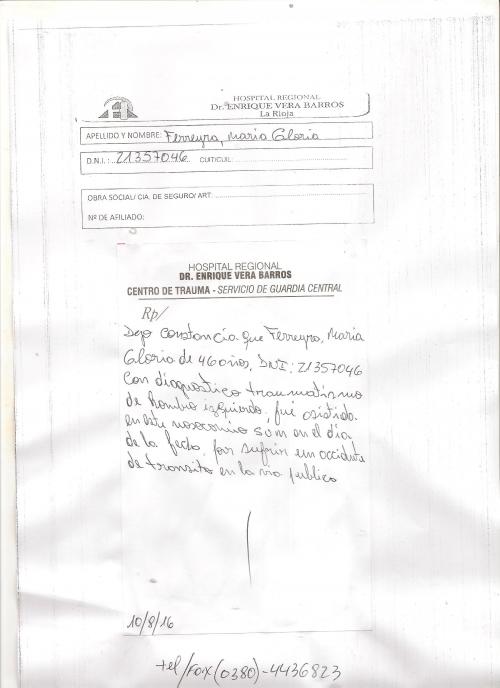 HOSPITAL REGIONAL
Dr. ENRIQUE VERA BARROS
La Rioja
APELLIDO Y NOMBRE: Ferreyra, Maria Gloria
D.N.I.: 21357046 CUIT/CUIL:
OBRA SOCIAL/ CIA. DE SEGURO/ ART:
Nº DE AFILIADO:
HOSPITAL REGIONAL
DR. ENRIQUE VERA BARROS
CENTRO DE TRAUMA - SERVICIO DE GUARDIA CENTRAL
Rp/
Dejo constancia que Ferreyra, Maria
Gloria de 46 años, DNI: 21357046
Con diagnostico traumatismo
de Hombro izquierdo, fué asistida
en este nosocomio en el dia
de la fecha, por sufrir un accidente
de transito en la via publica
10/8/16
tel/Fax (0380)-4436823